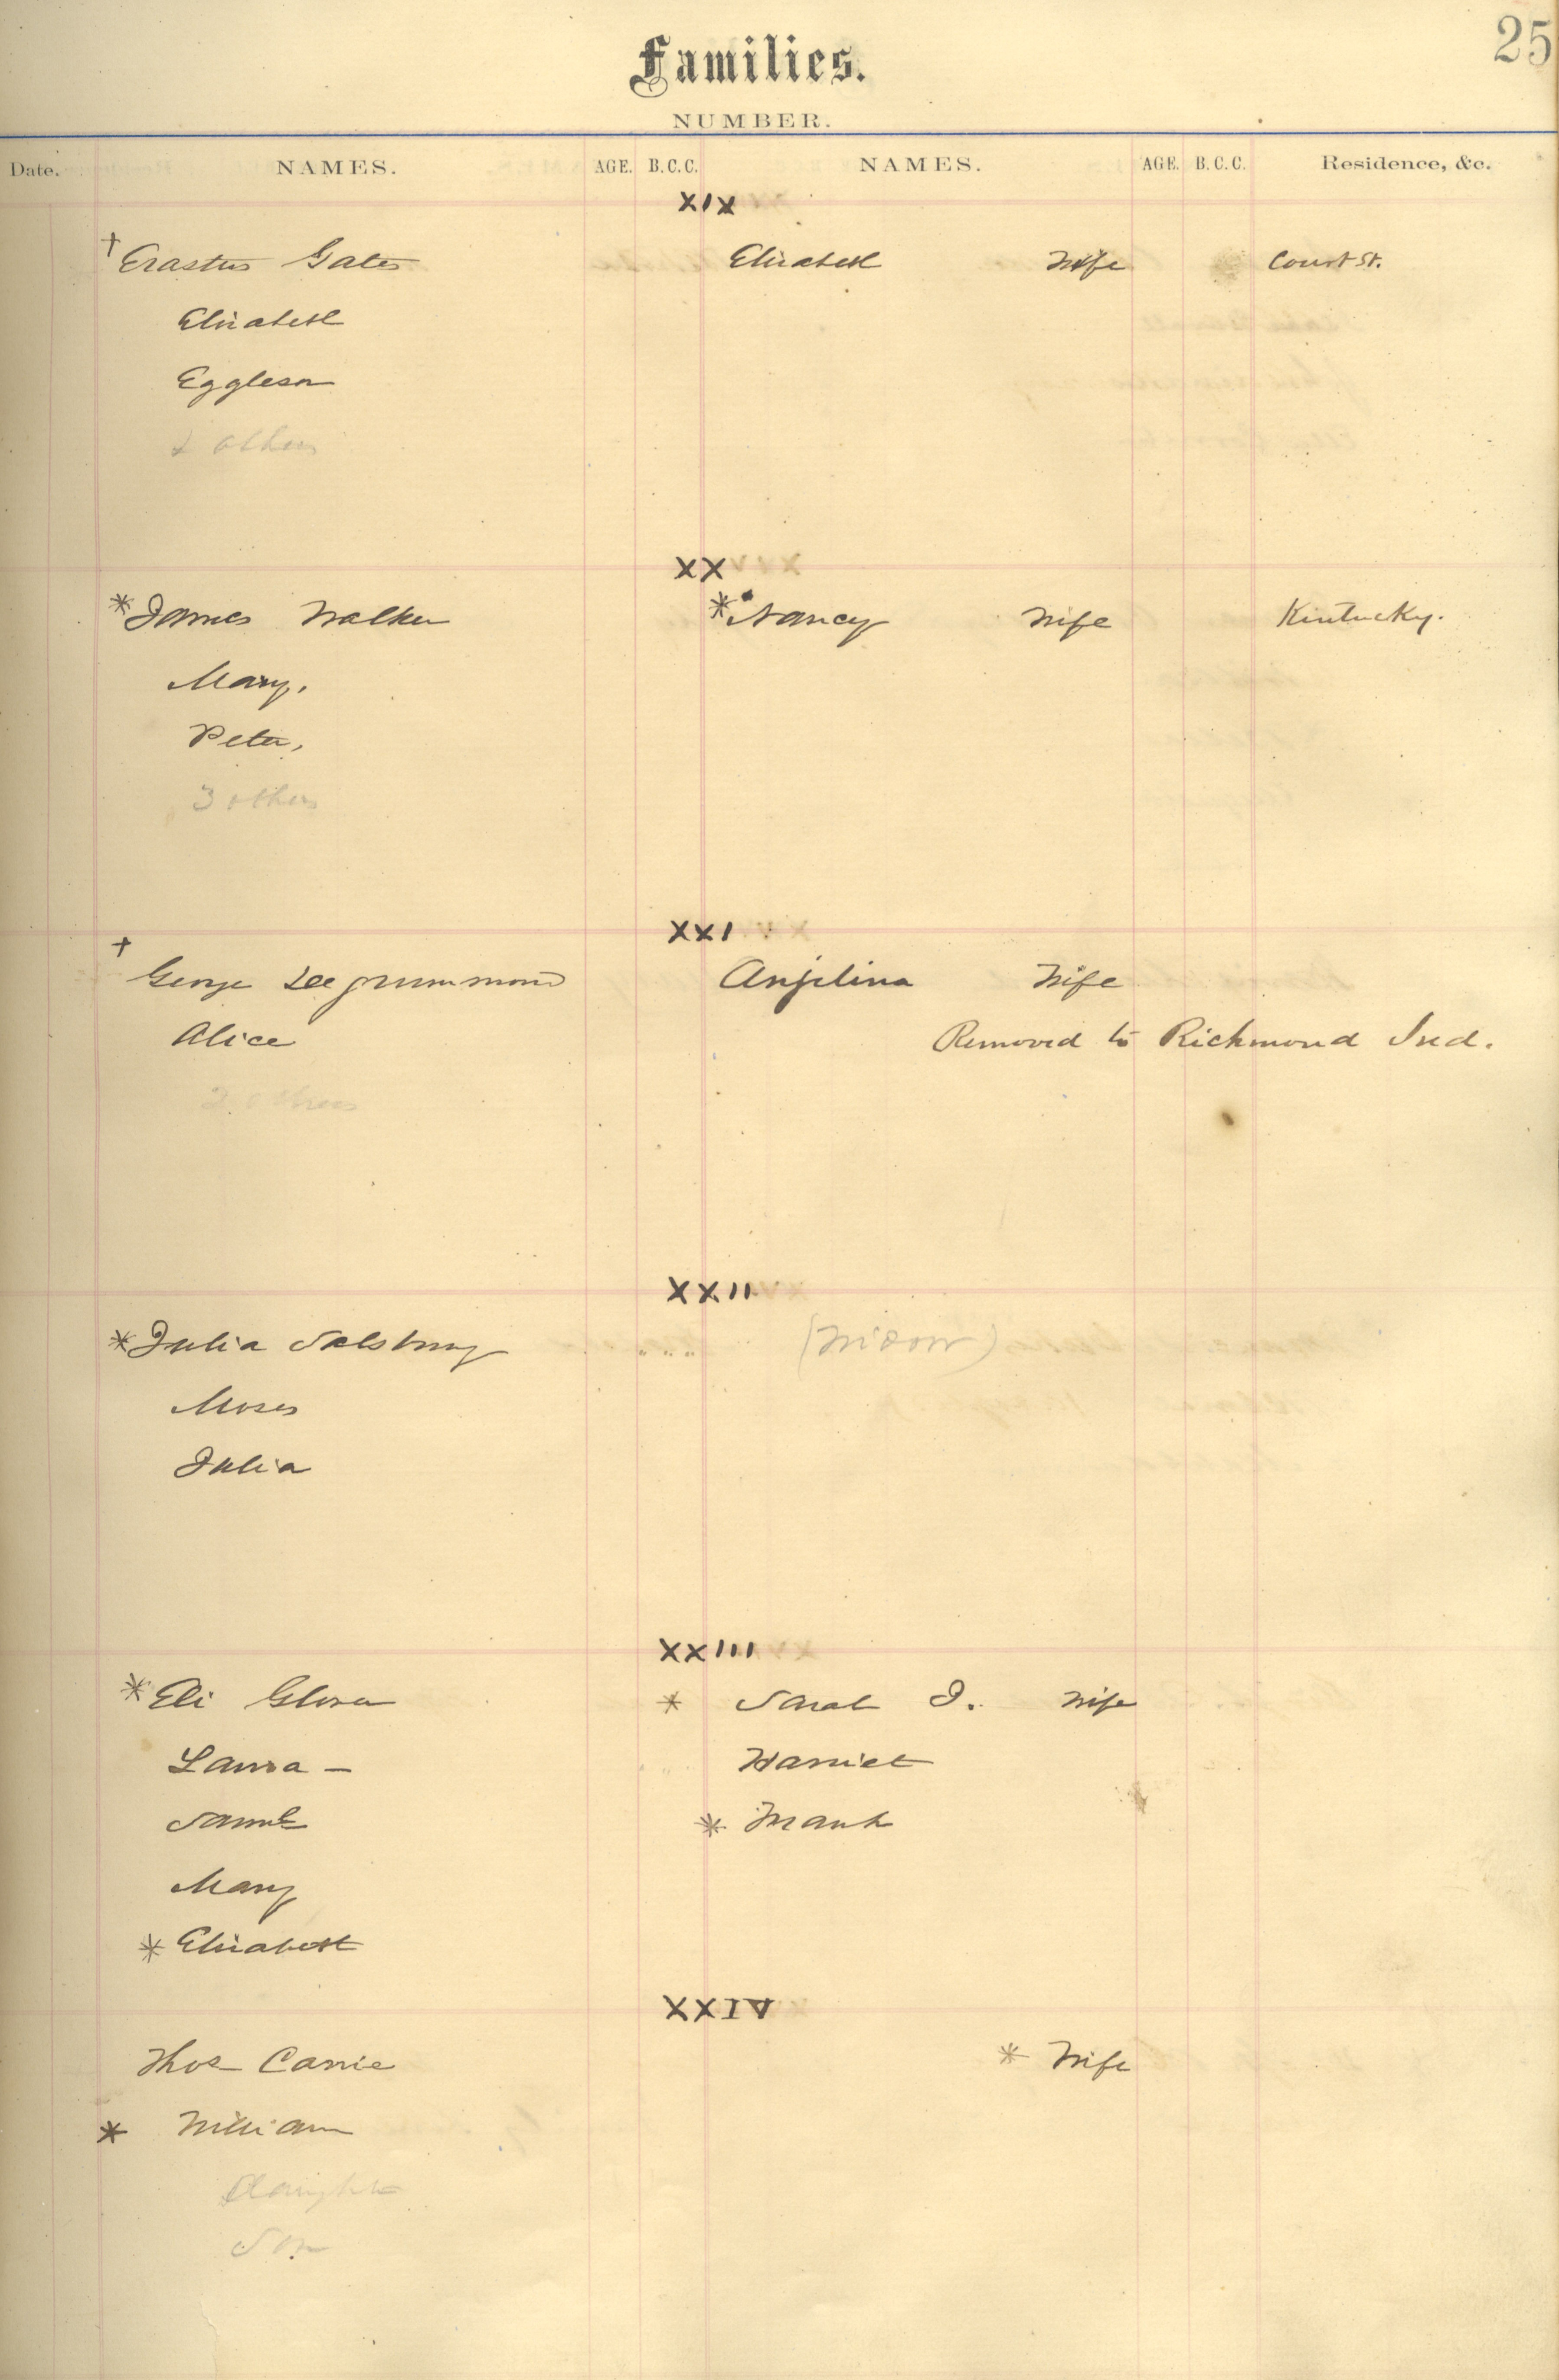 25
Families.
NUMBER.
Date. NAMES. AGE. B.C.C. NAMES. AGE. B.C.C. Residence, &c.
XIX
† Erastus Gates Elizabeth Wife Court St.
Elizabeth
Eggleson
& others
XX
* James Walker * Nancy Wife Kintucky.
Mary,
Peter,
3 others
XXI
† George Degrummond Anjelina Wife
Alice Removed to Richmond Ind.
2 others
XXII
* Julia Salsbury (Widow)
Moses
Julia
XXIII
* Eli Glover * Sarah J. Wife
Laura – Harriet
Saml * Frank
Mary
* Elizabeth
XXIV
Thos Carrie * Wife
* William
Daughter
Son